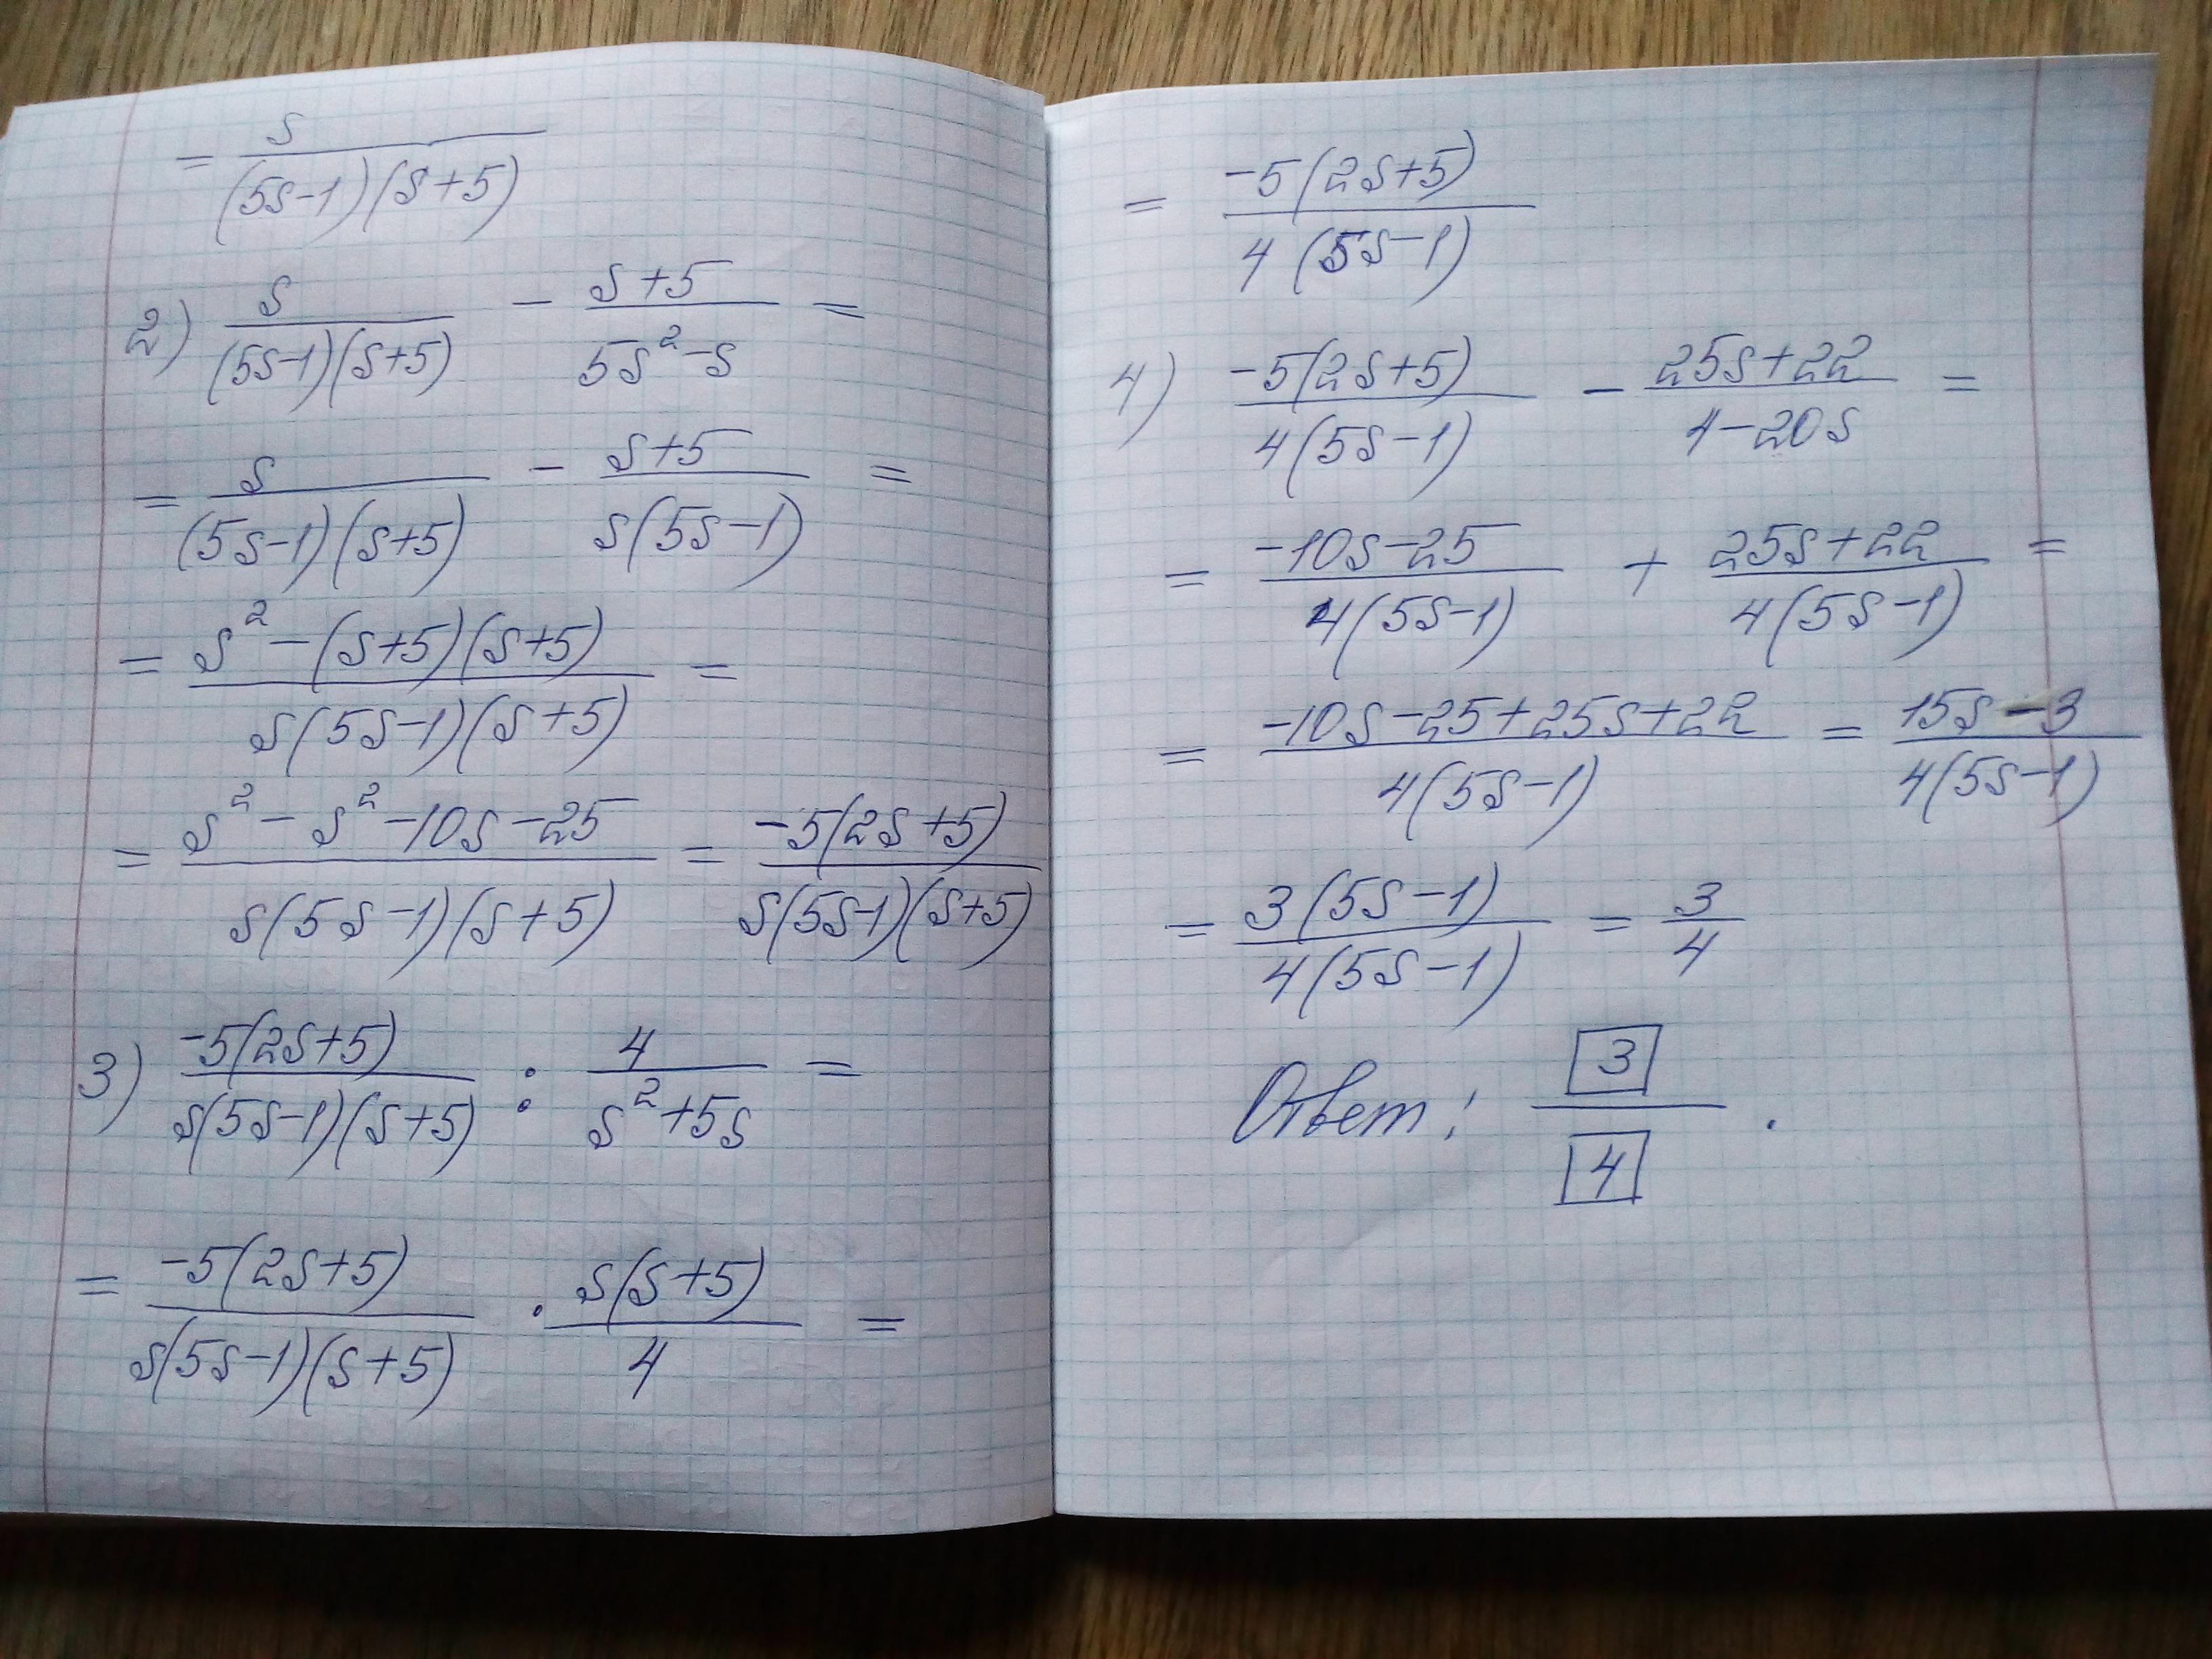 = s/((5s-1)(s+5))
2) s/((5s-1)(s+5)) - (s+5)/(5s²-s) =
= s/((5s-1)(s+5)) - (s+5)/(s(5s-1)) =
= (s²-(s+5)(s+5))/(s(5s-1)(s+5)) =
= (s²-s²-10s-25)/(s(5s-1)(s+5)) = (-5(2s+5))/(s(5s-1)(s+5))
3) (-5(2s+5))/(s(5s-1)(s+5)) : 4/(s²+5s) =
= (-5(2s+5))/(s(5s-1)(s+5)) · (s(s+5))/4 =
= (-5(2s+5))/(4(5s-1))
4) (-5(2s+5))/(4(5s-1)) - (25s+22)/(4-20s) =
= (-10s-25)/(4(5s-1)) + (25s+22)/(4(5s-1)) =
= (-10s-25+25s+22)/(4(5s-1)) = (15s-3)/(4(5s-1))
= (3(5s-1))/(4(5s-1)) = 3/4
Ответ: 3/4.